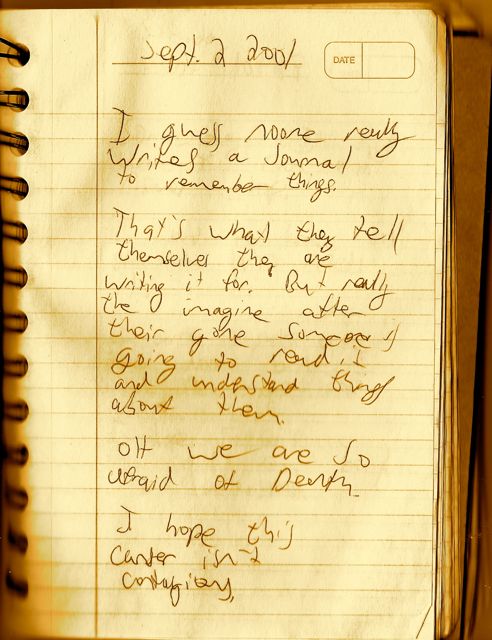 Sept. 2 2001
DATE
I guess noone really
writes a Journal
to remember things.
That's what they tell
themselves they are
writing it for. But really
the imagine after
their gone someone is
going to read it
and understand things
about them.
OH we are so
afraid of Death.
I hope this
cancer isn't
contagious.